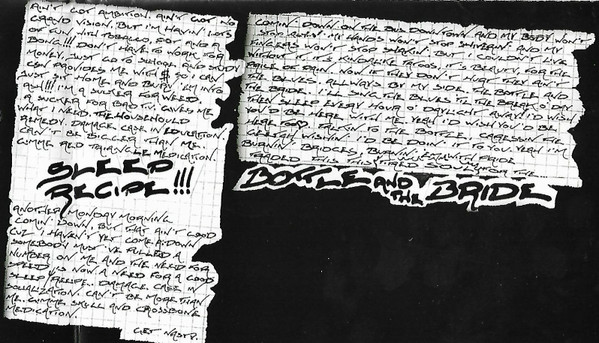 AIN'T GOT AMBITION. AIN'T GOT NO
GRAND VISION. BUT I'M HAVIN' LOTS
OF FUN WITH TOBACCO, POT AND A
BONG!!! DON'T HAVE TO WORK FOR
MONEY. JUST GO TO SCHOOL AND STUDY
CSN PROVIDES ME WITH $ SO I CAN
JUST SIT HOME AND BURN EM INTO
ASH!!! I'M A SUCKER FOR WEED,
A SUCKER FOR BAD TV. GIVES ME
WHAT I NEED, THE HOUSEHOLD
REMEDY. DAMAGE CASE IN EDUCATION
CAN'T BE SICKER THAN ME.
GIMME RED TRIANGLE MEDICATION.
SLEEP
RECIPE!!!
ANOTHER MONDAY MORNING
COMIN' DOWN, BUT THAT AIN'T GOOD
CUZ I HAVEN'T YET COME A-DOWN
SOMEBODY MUST'VE PULLED A
NUMBER ON ME AND THE NEED FOR
SPEED IS NOW A NEED FOR A GOOD
SLEEP RECIPE. DAMAGE CASE IN
SOCIALIZATION. CAN'T BE MORE THAN
ME. GIMME SKULL AND CROSSBONE
MEDICATION.
GET NASTY.
COMIN' DOWN ON THE BUS DOWNTOWN AND MY BODY WON'T
STOP ACHE'N. MY HANDS WON'T STOP SHIVERIN' AND MY
FINGERS WON'T STOP SHAKIN'. BUT I COULDN'T LIVE
WITHOUT IT, IT'S KINDA LIKE TACOS. IT'S BEAUTY, FOR THE
PRICE OF PAIN. NOW IF THEY DON'T HURT THEY AIN'T
THE BLUES. ALLWAYS BY MY SIDE, THE BOTTLE AND
THE BRIDE. I'LL SING THE BLUES TIL THE BREAK O' DAY.
THEN SLEEP EVERY HOUR O' DAYLIGHT AWAY. I'D WISH
YOU'D BE HERE WITH ME. YEAH I'D WISH YOU'D BE
HERE TALKIN' TO THE BOTTLE, CARESSIN' THE
GEETAR, WISHIN' I'D BE DOIN' IT TO YOU. YEAH I'M
BURNIN' BRIDGES, BURNIN' WITH PRIDE
TRADED THIS
BOTTLE AND
THE BRIDE